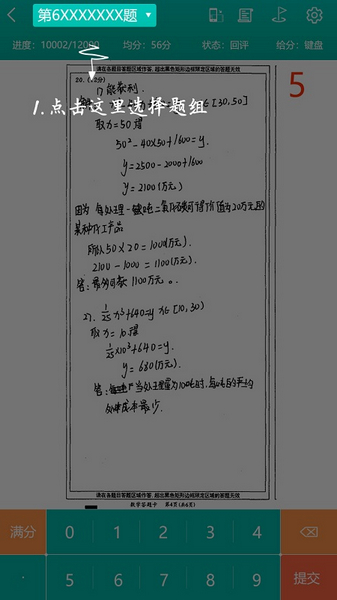 第6XXXXXXX题
进度：10002/12000 均分：56分 状态：回评 给分：键盘
请在各题目答题区域作答，超出黑色矩形边框限定区域的答题无效
20.(12分)
5
1.点击这里选择题组
1) 能获利.
∈[30,50]
取x=50 得
50²-40×50+1600=y.
y=2500-2000+1600
y=2100(万元)
因为 每处理一吨二氧化碳可得价值为20万元的
某种化工产品
所以50×20=1000(万元).
2100-1000=1100(万元).
答: 1100万元。
2). 1/25 x³+640=y x∈[10,30)
取x=10得
1/25×10³+640=y.
y=680(万元).
答: 当处理量为10吨时,每吨的平均
处理成本最少.
请在各题目答题区域作答，超出黑色矩形边框限定区域的答题无效
数学答题卡 第4页(共6页)
满分 0 1 2 3 4
· 5 6 7 8 9 提交